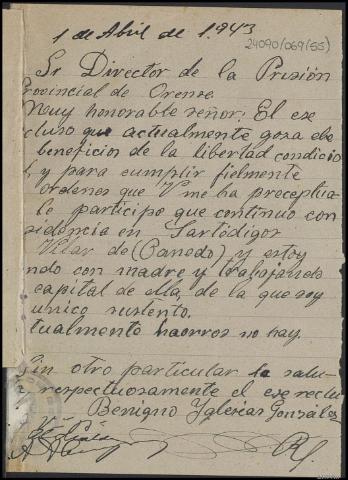 1 de Abril de 1.943
24090/069(55)
Sr Director de la Prisión
Provincial de Orense.
Muy honorable señor: El exe
cluso que actualmente goza de
beneficios de la libertad condicio
l, y para cumplir fielmente
ordenes que V me ha preceptua
le participo que continuo con
sidencia en Sartódigos
Vilar de (Canedo) y estoy
ndo con madre y trabajando
capital de ella, de la que soy
unico sustento.
tualmente haorros no hay.
Sin otro particular le salu-
respectuosamente el exreclu
Benigno Yglesias Gonzalez